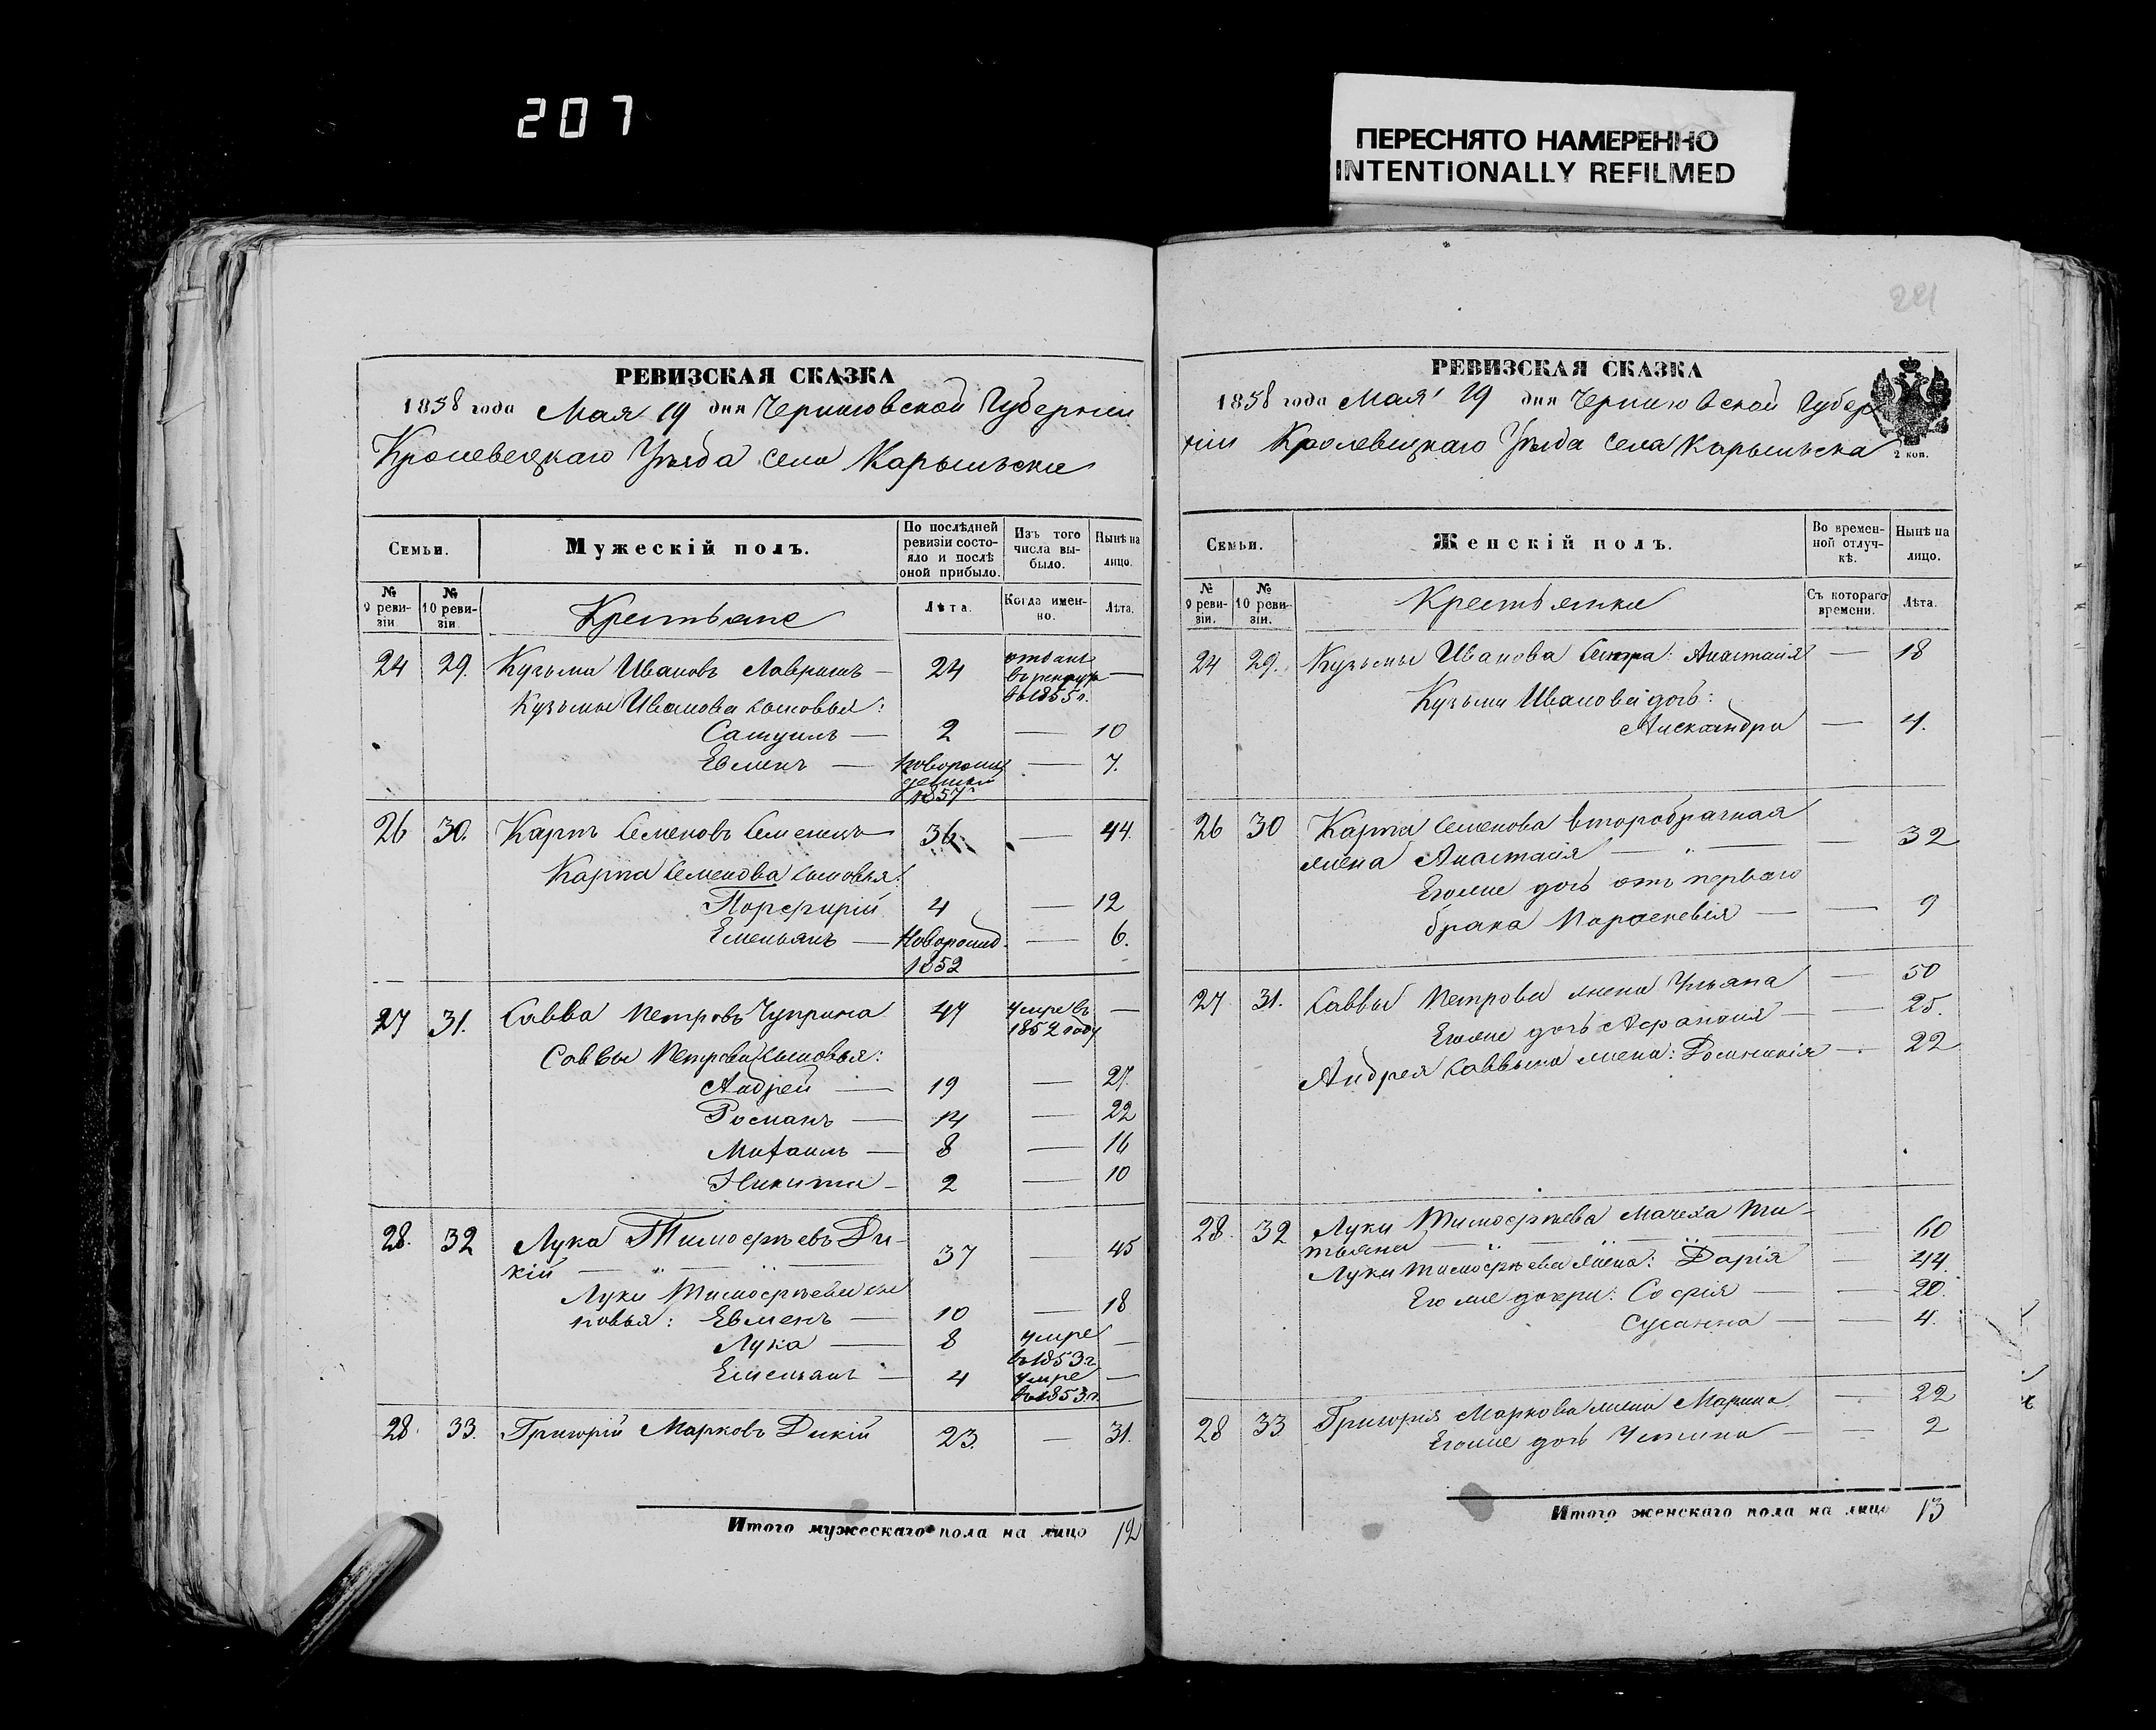 207
ПЕРЕСНЯТО НАМЕРЕННО
INTENTIONALLY REFILMED
РЕВИЗСКАЯ СКАЗКА
1858 года Мая 19 дня Черниговской Губерніи
Кролевецкаго Уѣзда села Карыльска
Семьи.
Мужескій полъ.
По послѣдней ревизіи состояло и послѣ оной прибыло.
Изъ того числа выбыло.
Нынѣ на лицо.
№ 9 ревизіи
№ 10 ревизіи
Крестьяне
Лѣта.
Когда именно.
Лѣта.
24 29. Кузьма Ивановъ Лавришъ — 24 отданъ въ рекруты въ 1855 г. —
Кузьмы Иванова сыновья:
Самуилъ — 2 — 10
Евменъ — новорожденный 1857 — 7.
26 30. Карпъ Семеновъ Семенецъ 36 — 44.
Карпа Семенова сыновья:
Порфирій 4 — 12
Емельянъ — Новорожд. 1852 — 6.
27 31. Савва Петровъ Чуприна 47 умре въ 1852 году —
Саввы Петрова сыновья:
Андрей — 19 — 27.
Романъ — 14 — 22
Михаилъ — 8 — 16
Никита — 2 — 10
28. 32 Лука Тимофѣевъ Ди-
кій — 37 — 45
Луки Тимофѣева сы
новья: Евменъ — 10 — 18
Лука — 8 умре въ 1853 г. —
Емельянъ — 4 умре въ 1853 г. —
28. 33. Григорій Марковъ Дикій 23. — 31.
Итого мужескаго пола на лицо 12
221
РЕВИЗСКАЯ СКАЗКА
1858 года Мая 19 дня Черниговской Губер
ніи Кролевецкаго Уѣзда села Карыльска
2 коп.
Семьи.
Женскій полъ.
Во временной отлучкѣ.
Нынѣ на лицо.
№ 9 ревизіи.
№ 10 ревизіи.
Крестьянки
Съ котораго времени.
Лѣта.
24 29. Кузьмы Иванова Сестра: Анастасія — 18
Кузьмы Иванова дочь:
Александра — 4.
26 30 Карпа Семенова второбрачная
жена Анастасія — 32
Его же дочь отъ перваго
брака Параскевія — 9
27 31. Саввы Петрова жена Ульяна — 50
Его же дочь Афанасія — 25.
Андрея Саввина жена: Домникія — 22
28. 32 Луки Тимофѣева мачеха Та-
тьяна — 60
Луки Тимофѣева жена: Дарія — 44.
Его же дочери: Софія — 20.
Сусанна — 4.
28 33 Григорія Маркова жена Марина — 22
Его же дочь Устина — 2
Итого женскаго пола на лицо 13